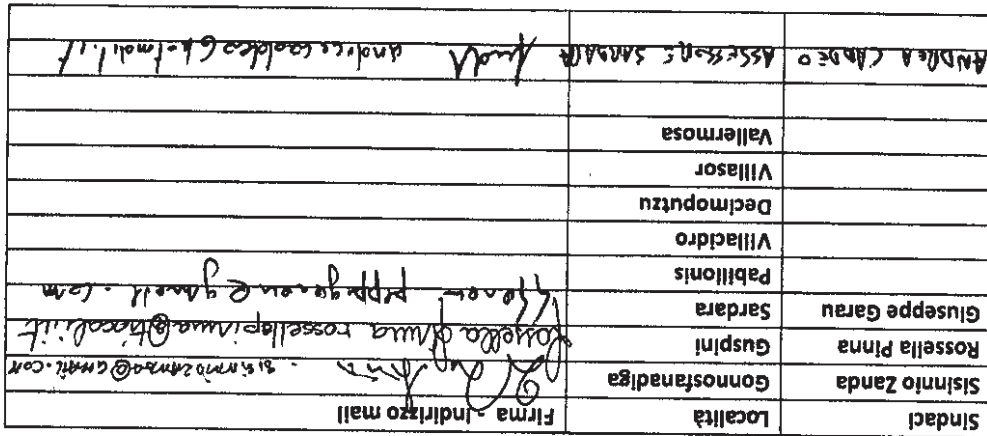 Sindaci Località Firma - Indirizzo mail
Sisinnio Zanda Gonnosfanadiga sisinniozanda@gmail.com
Rossella Pinna Guspini Rossella Pinna rossellapinna@tiscali.it
Giuseppe Garau Sardara peppegarau@gmail.com
Pabillonis
Villacidro
Decimoputzu
Villasor
Vallermosa
ANDREA CADDEO ASSESSORE SARDARA